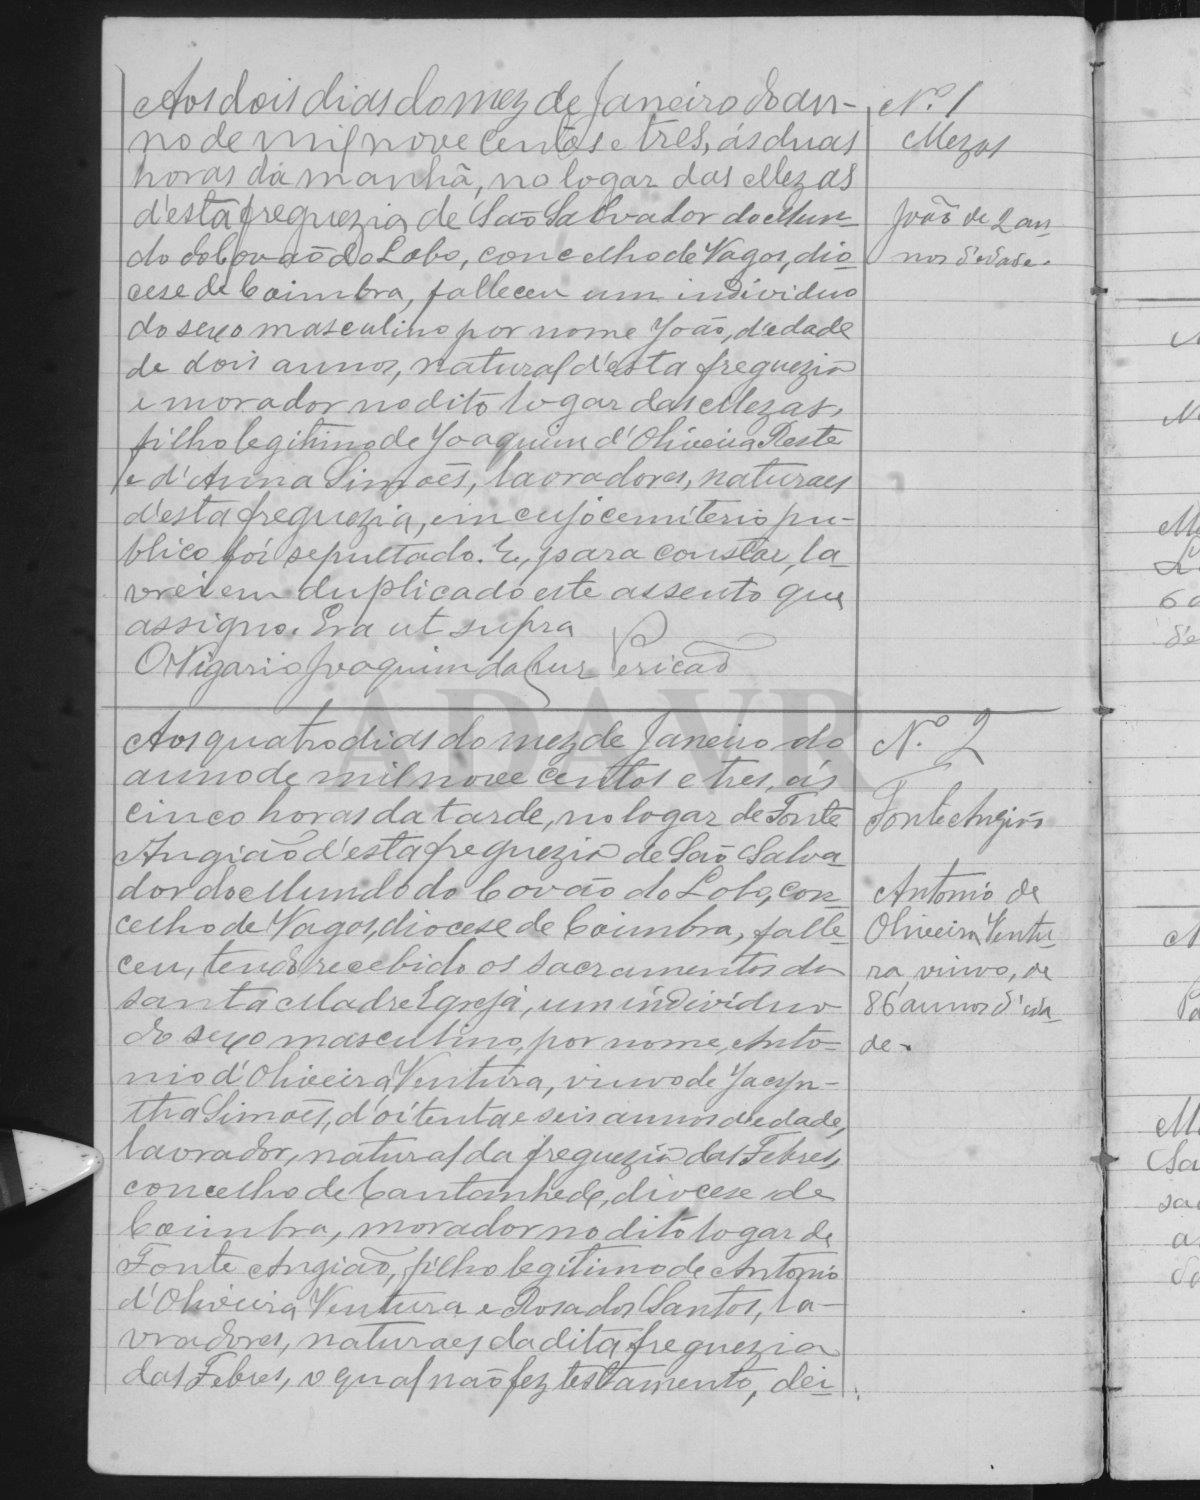 Nº 1
Mezas
João de 2 an-
nos d'edade.
Aos dois dias do mez de Janeiro do an-
no de mil nove centos e tres, ás duas
horas da manhã, no logar das Mezas
d'esta freguezia de São Salvador do Mun-
do do Covão do Lobo, concelho de Vagos, dio-
cese de Coimbra, falleceu um individuo
do sexo masculino por nome João, d'edade
de dois annos, natural d'esta freguezia
e morador no dito logar das Mezas,
filho legitimo de Joaquim d'Oliveira Reste
e d'Anna Simões, lavradores, naturaes
d'esta freguezia, em cujo cemiterio pu-
blico foi sepultado. E, para constar, la-
vrei em duplicado este assento que
assigno. Era ut supra
O Vigario Joaquim da Cruz Pericão
ADAVR
Nº 2
Fonte Angião
Antonio de
Oliveira Ventu-
ra, viuvo, de
86 annos d'eda-
de.
Aos quatro dias do mez de Janeiro do
anno de mil nove centos e tres, ás
cinco horas da tarde, no logar de Fonte
Angião d'esta freguezia de São Salva-
dor do Mundo do Covão do Lobo, con-
celho de Vagos, diocese de Coimbra, falle-
ceu, tendo recebido os sacramentos da
santa Madre Egreja, um individuo
do sexo masculino, por nome, Anto-
nio d'Oliveira Ventura, viuvo de Jacyn-
tha Simões, d'oitenta e seis annos d'edade,
lavrador, natural da freguezia das Febres,
concelho de Cantanhede, diocese de
Coimbra, morador no dito logar de
Fonte Angião, filho legitimo de Antonio
d'Oliveira Ventura e Rosa dos Santos, la-
vradores, naturaes da dita freguezia
das Febres, o qual não fez testamento, dei-